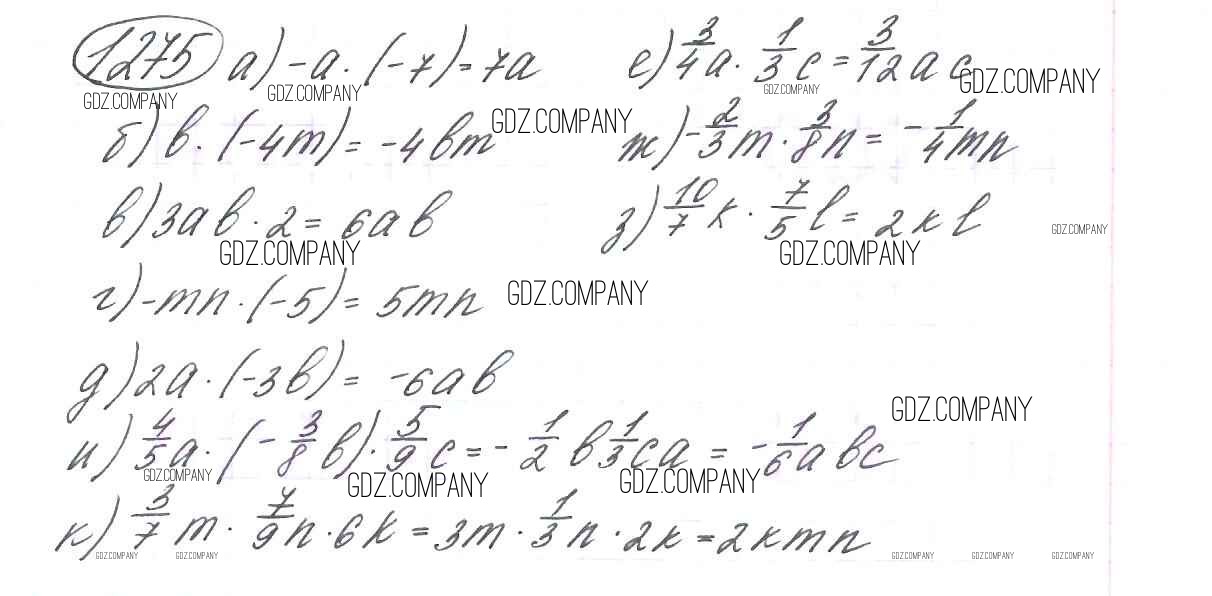 1275 а) -a · (-7) = 7a е) 3/4 a · 1/3 c = 3/12 a c
GDZ.COMPANY GDZ.COMPANY GDZ.COMPANY GDZ.COMPANY
б) b · (-4m) = -4bm GDZ.COMPANY ж) -2/3 m · 3/8 n = -1/4 mn
в) 3ab · 2 = 6ab з) 10/7 k · 7/5 l = 2kl
GDZ.COMPANY GDZ.COMPANY GDZ.COMPANY
г) -mn · (-5) = 5mn GDZ.COMPANY
д) 2a · (-3b) = -6ab
GDZ.COMPANY
и) 4/5 a · (-3/8 b) · 5/9 c = -1/2 b 1/3 ca = -1/6 abc
GDZ.COMPANY GDZ.COMPANY GDZ.COMPANY
к) 3/7 m · 7/9 n · 6k = 3m · 1/3 n · 2k = 2kmn
GDZ.COMPANY GDZ.COMPANY GDZ.COMPANY GDZ.COMPANY GDZ.COMPANY